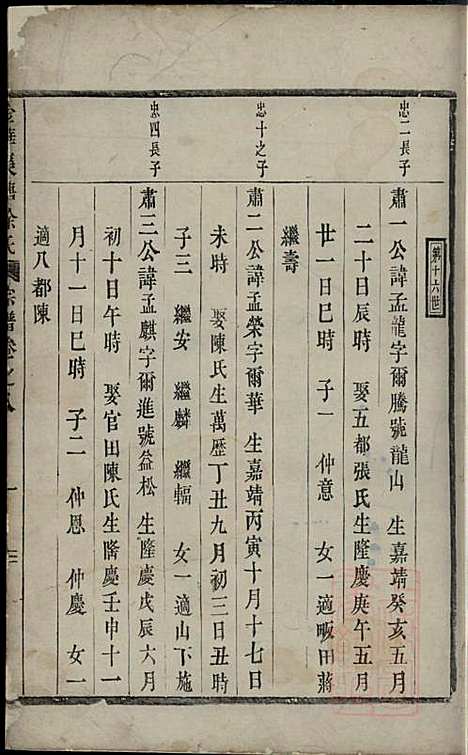 第十六世
忠二長子
肅一公諱孟龍字爾騰號龍山 生嘉靖癸亥五月
二十日辰時 娶五都張氏生隆慶庚午五月
廿一日巳時 子一 仲意 女一適畈田蔣
繼壽
忠十之子
肅二公諱孟榮字爾華 生嘉靖丙寅十月十七日
未時 娶陳氏生萬歷丁丑九月初三日丑時
子三 繼安 繼麟 繼輻 女一適山下施
忠四長子
肅三公諱孟麒字爾進號益松 生隆慶戊辰六月
初十日午時 娶官田陳氏生隆慶壬申十一
月十一日巳時 子二 仲恩 仲慶 女一
適八都陳
徐氏宗譜卷之八